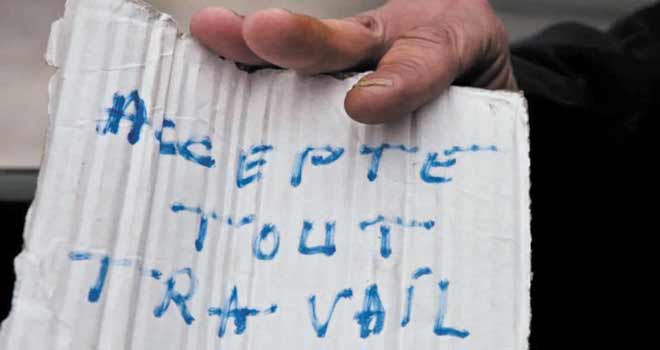 ACCEPTE
TOUT
TRAVAIL